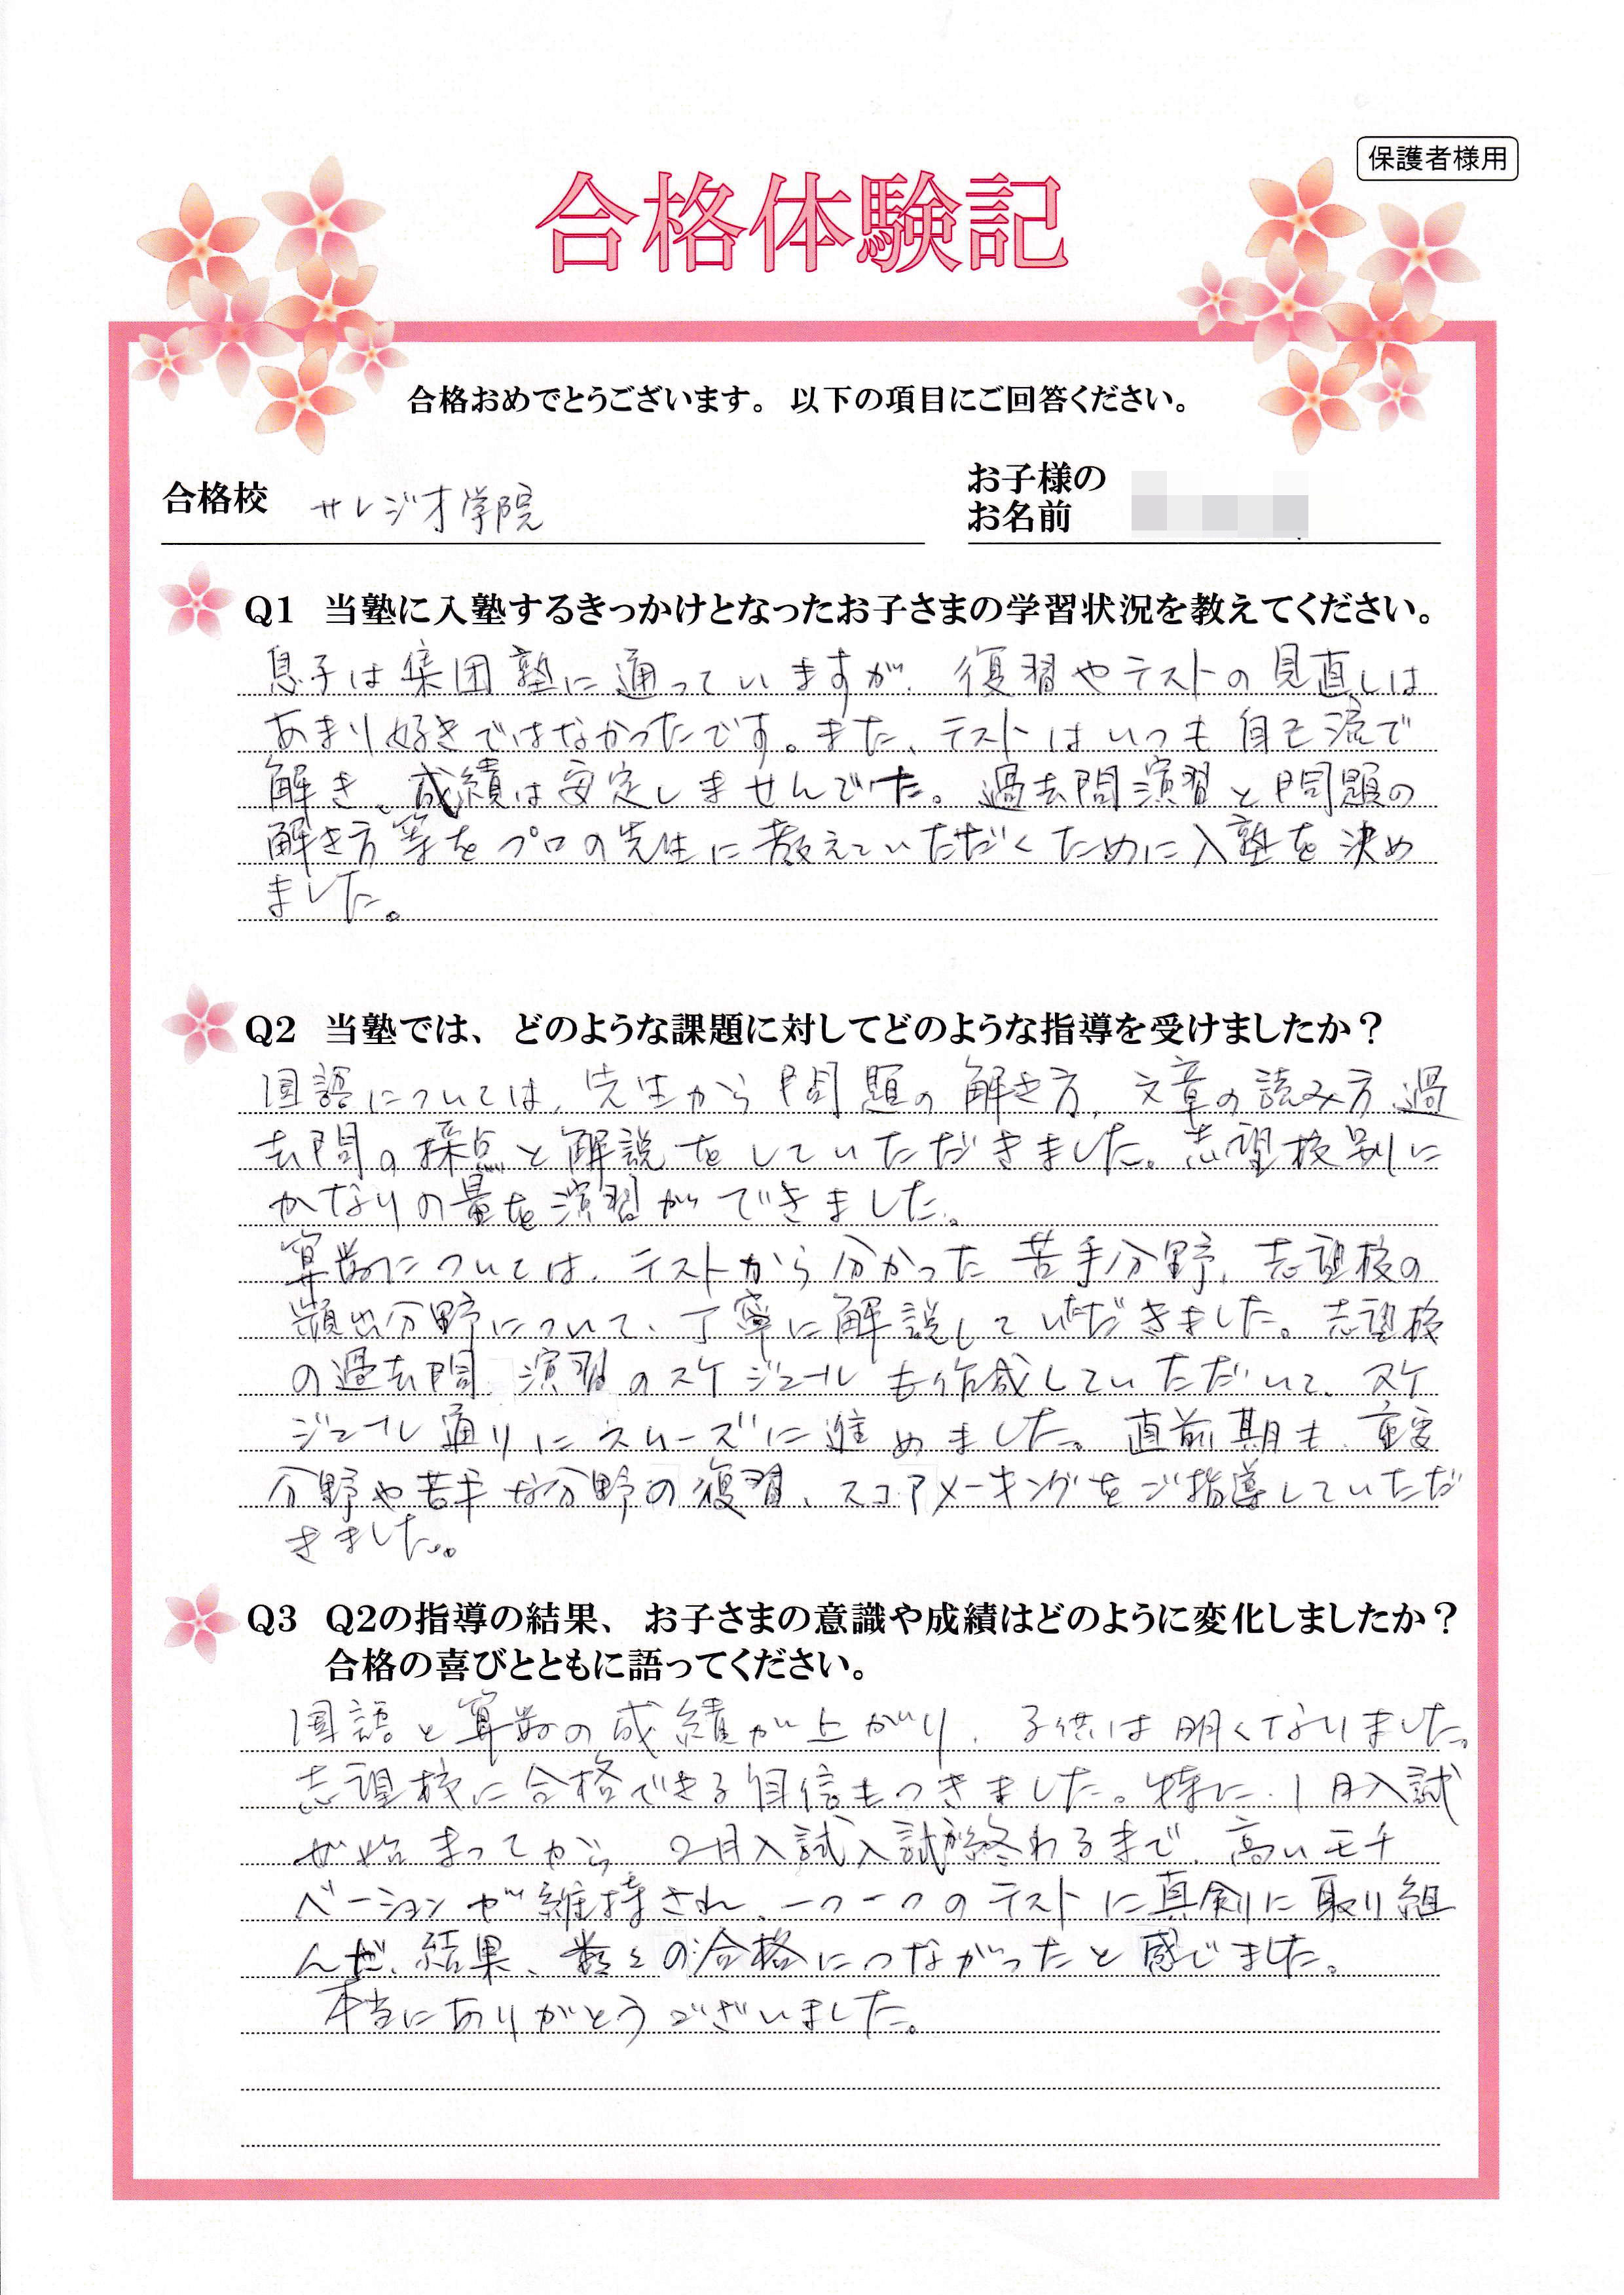 保護者様用
合格体験記
合格おめでとうございます。以下の項目にご回答ください。
合格校 サレジオ学院
お子様の
お名前
Q1 当塾に入塾するきっかけとなったお子さまの学習状況を教えてください。
息子は集団塾に通っていますが、復習やテストの見直しは
あまり好きではなかったです。また、テストはいつも自己流で
解き、成績は安定しませんでした。過去問演習と問題の
解き方等をプロの先生に教えていただくために入塾を決め
ました。
Q2 当塾では、どのような課題に対してどのような指導を受けましたか？
国語については、先生から問題の解き方、文章の読み方、過
去問の採点と解説をしていただきました。志望校別に
かなりの量を演習ができました。
算数については、テストから分かった苦手分野、志望校の
頻出分野について、丁寧に解説していただきました。志望校
の過去問、演習のスケジュールも作成していただいて、スケ
ジュール通りにスムーズに進めました。直前期も、重要
分野や苦手な分野の復習、スコアメーキングをご指導していただ
きました。
Q3 Q2の指導の結果、お子さまの意識や成績はどのように変化しましたか？
合格の喜びとともに語ってください。
国語と算数の成績が上がり、子供は明くなりました。
志望校に合格できる自信もつきました。特に、1月入試
が始まってから、2月入試入試が終わるまで、高いモチ
ベーションが維持され、一つ一つのテストに真剣に取り組
んだ、結果、数々の合格につながったと感じました。
本当にありがとうございました。